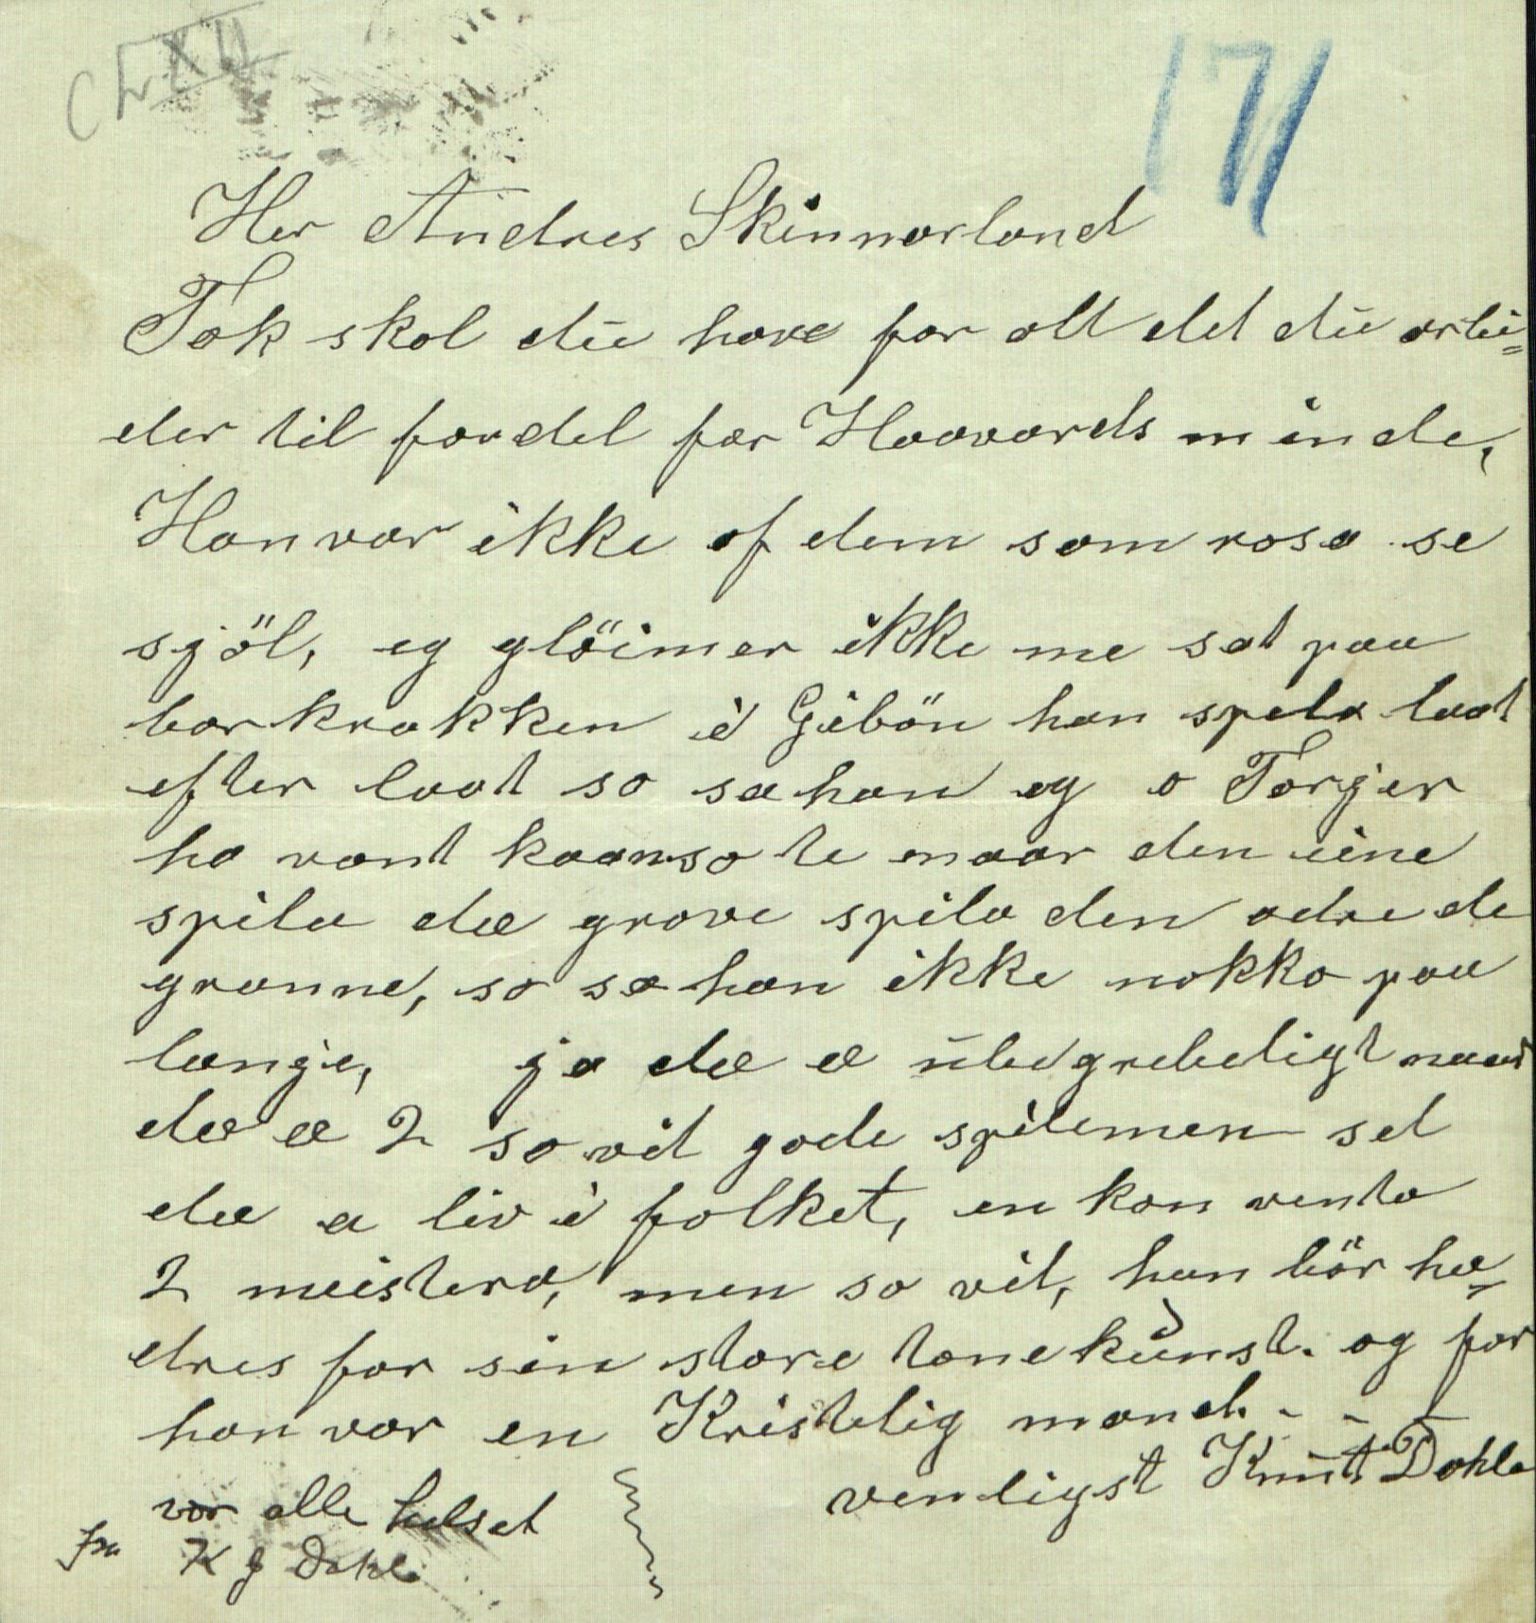 CLXII
171
Her Andres Skinnarland
Tak skal du have for alt det du arbei=
der til fordel for Haavards minde,
Han var ikke af dem som rosa se
sjöl, eg glöimer ikke me sat paa
barkrakken i Gibön han spela laat
efter laat so sa han eg o Torjer
ha vant kaanso te naar den eine
spila dæ grove spila den adre de
granne, so sa han ikke nokko paa
længje, ja dæ æ ubegrebeligt naar
dæ æ 2 so vit gode spilemen set
dæ a liv i folket, en kan venta
2 meistera, men so vit, han bör hæ=
dres for sin store tonekunst. og for
han var en Kristelig mand. - -
venligst Knut Dahle
vær alle helset
fra K J Dahle